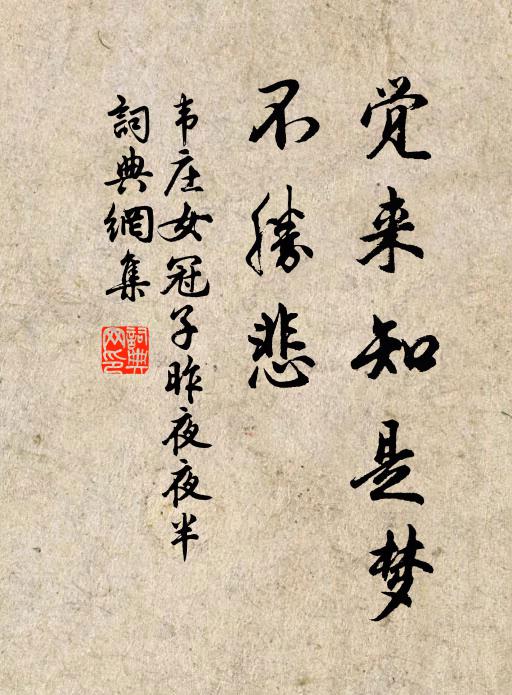 觉来知是梦
不胜悲
韦庄女冠子昨夜夜半
詞典網集
詞典
网印